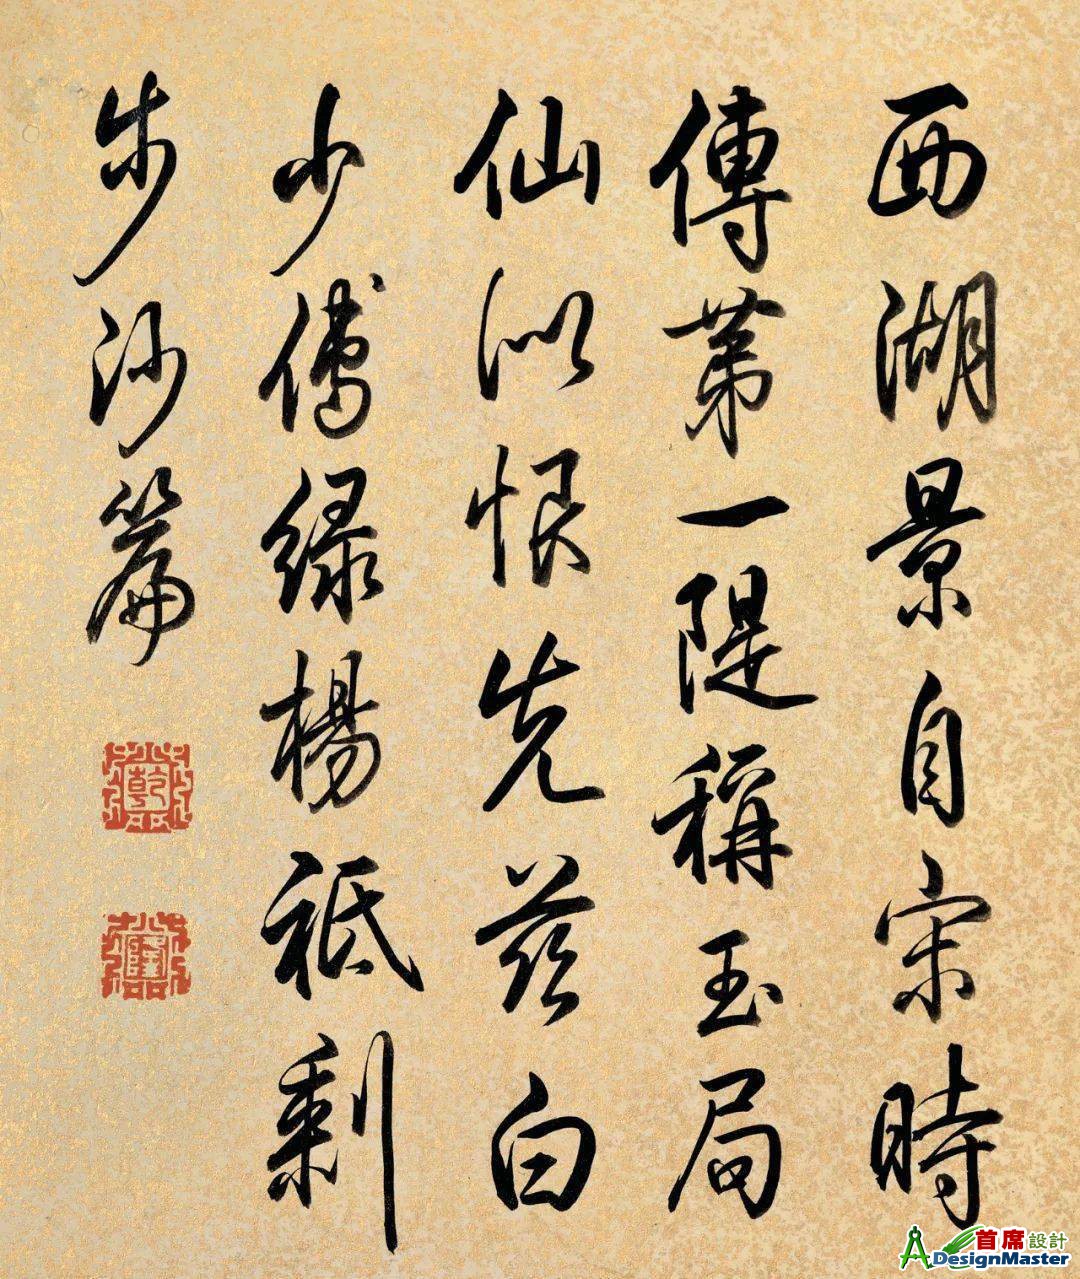 西湖景自宋時
傳第一隄稱玉局
仙似恨先兹白
少傅綠楊祗剩
步沙篇
乾
隆
首席設計
DesignMaster